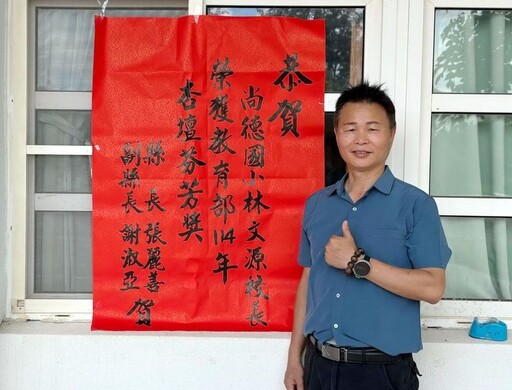 恭賀
尚德國小林文源校長
榮獲教育部114年
杏壇芬芳獎
縣長張麗善
副縣長謝淑亞
賀